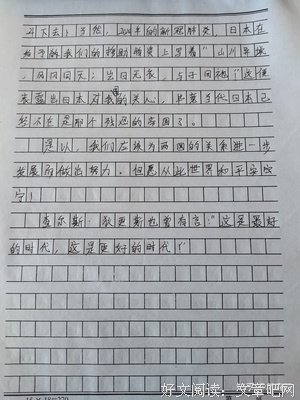 下去），另控，2020年的新冠肺炎，日本在
给予的我们的捐助箱上写着"山川异域，
风月同天；岂曰无衣，与子同袍"这便
表露出日本对我国的关心，也象当代日本已
经不在是那个残忍的帝国了。
是以，我们应该为两国的关系进一步
发展而做出努力。但愿从此世界和平安成
宁！
查尔斯·狄更斯也曾有言："这是最好
的时代，这是更好的时代！"
15×18=270
好文阅读：文章吧网